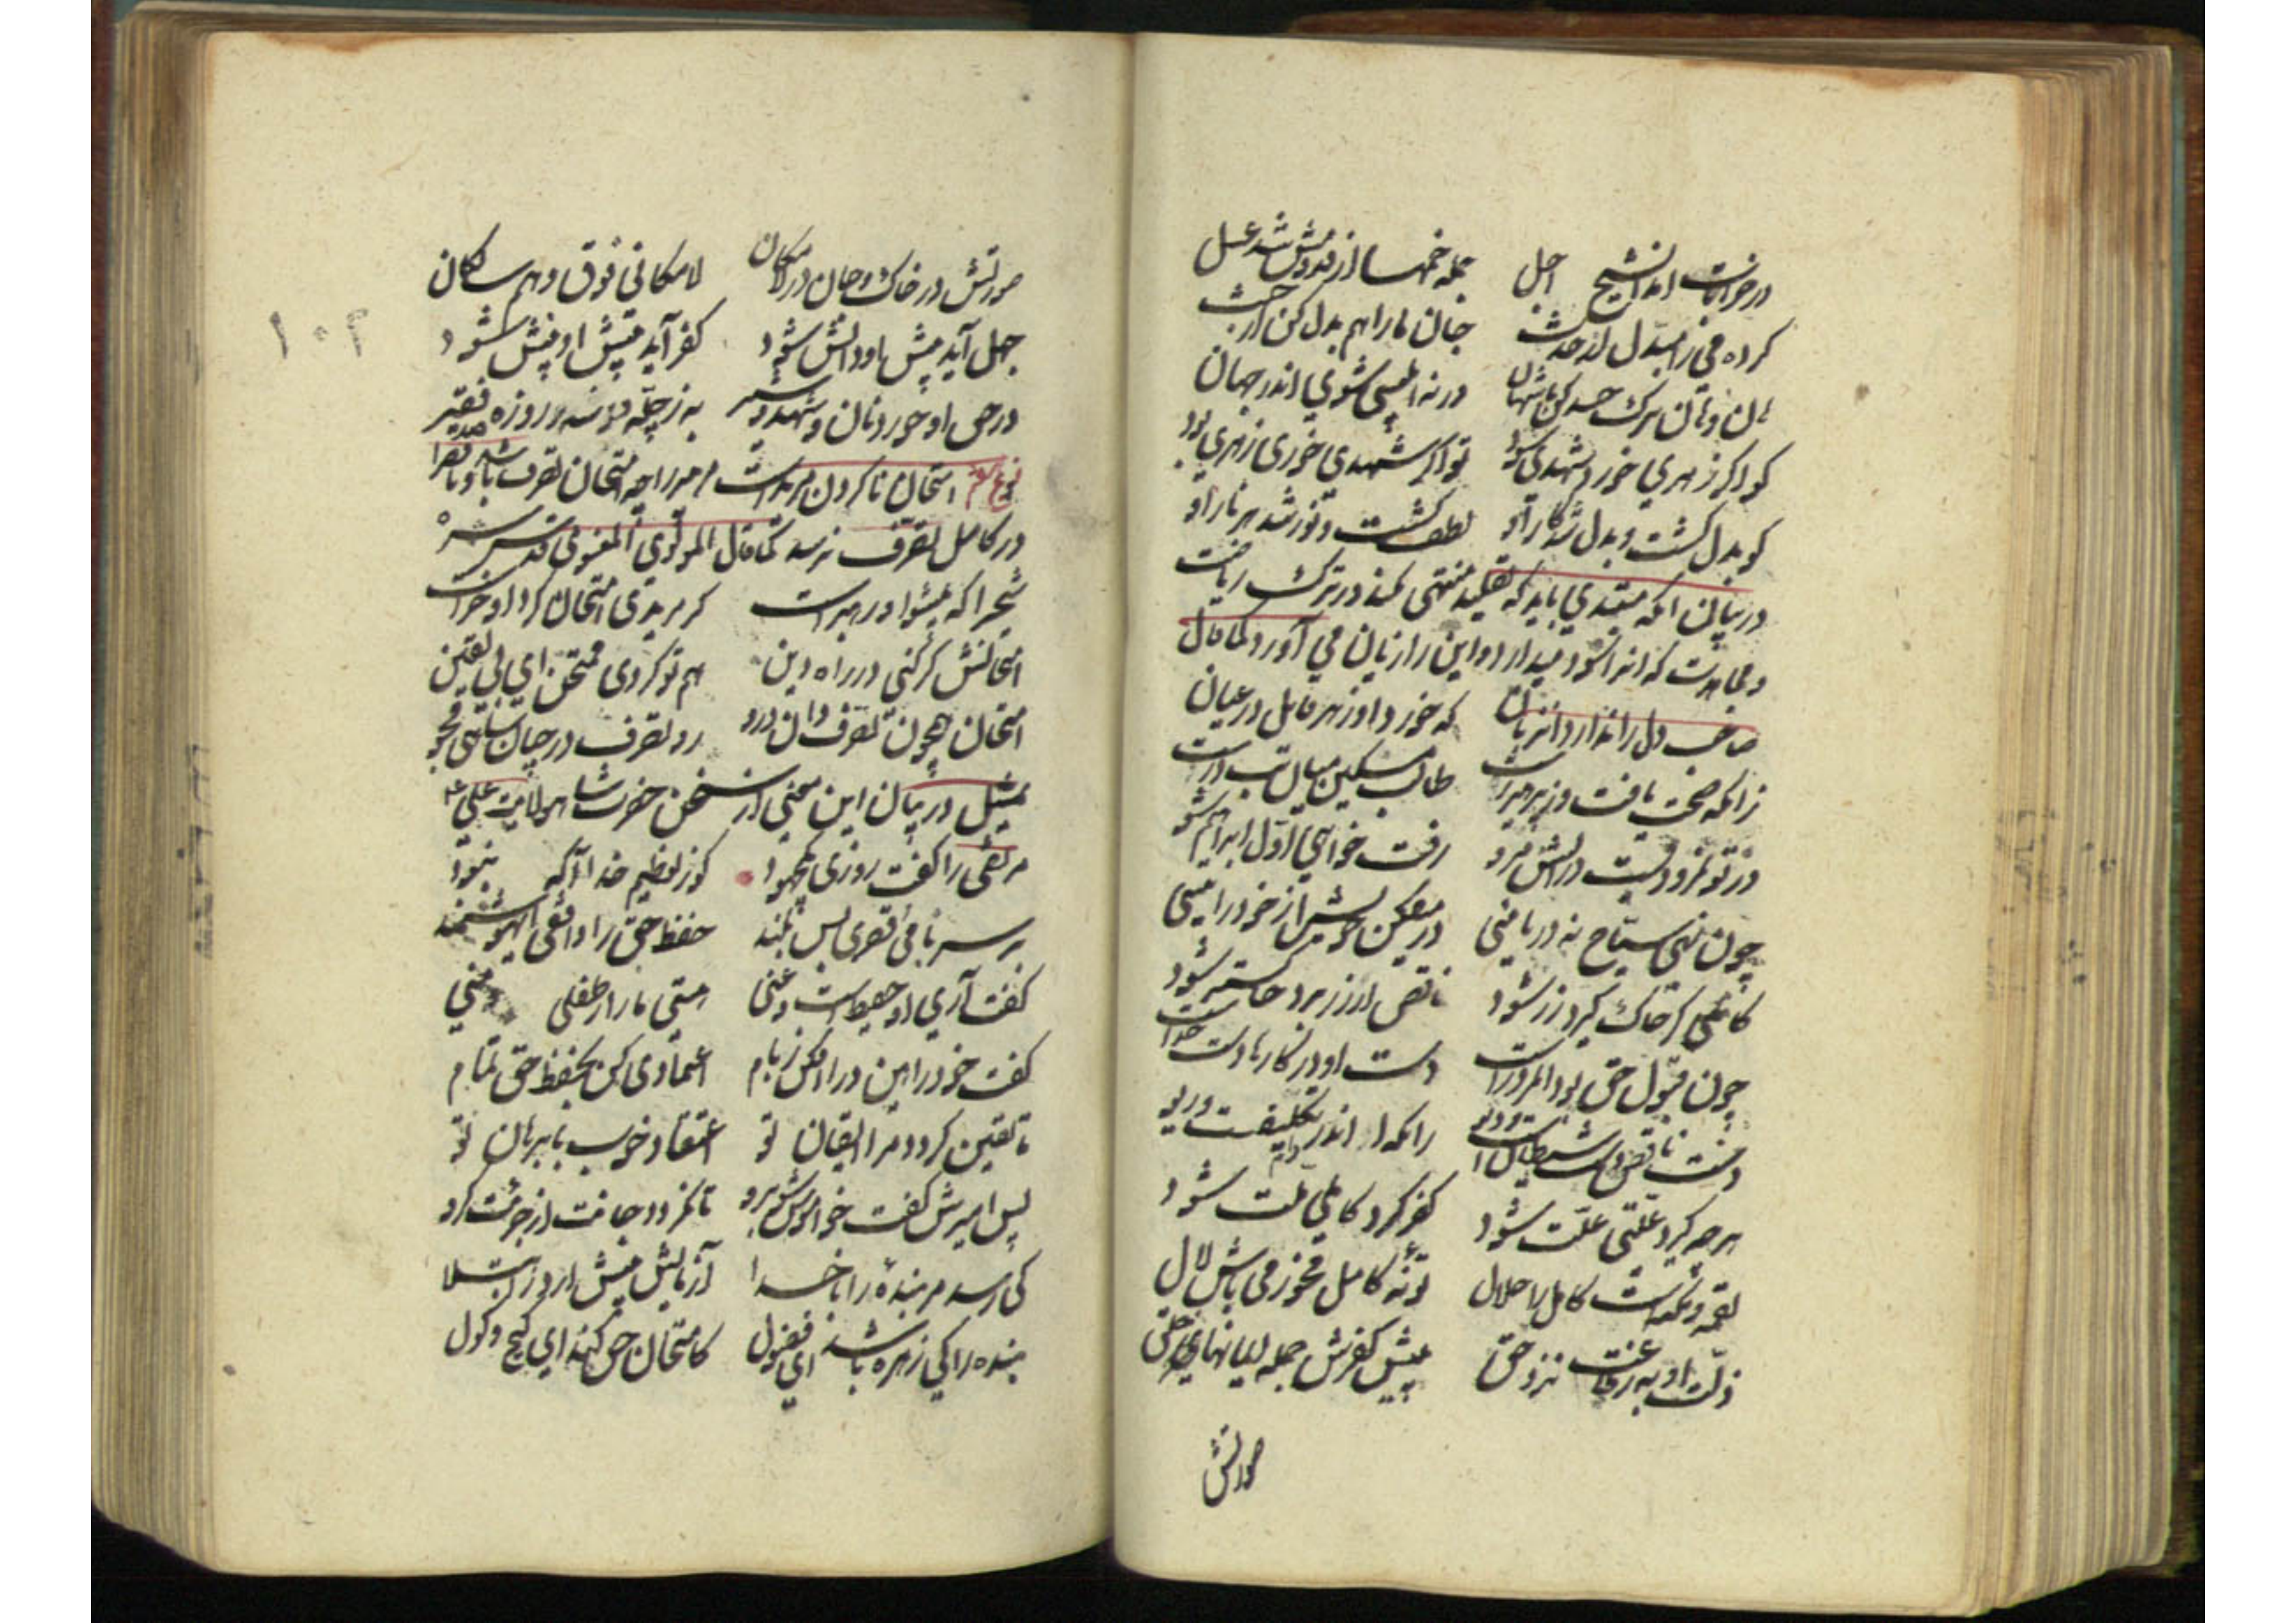 در خرابات آمد آن شیخ اجل جمله خمها از قدومش شد عسل
کرده می را مبدل از حدث جان ما را هم بدل کن از خبث
ورنه ابلیسی شوی اندر جهان
کو اگر زهری خورد شهدی شود تو اگر شهدی خوری زهری بود
کو بدل گشت و بدل شد کار او لطف گشت و نور شد هر نار او
در بیان آنکه مبتدی باید که تقلید منتهی نکند در ترک ریاضت
و مجاهدت که او را سود میدارد و این را زیان می آورد کما قال
صاحب دل را ندارد آن زیان که خورد او زهر قاتل در عیان
زانکه صحت یافت وز پرهیز رست طالب مسکین میان تب درست
در تو نمرودیست در آتش مرو رفت خواهی اول ابراهیم شو
چون نهٔ سباح نه دریایی در میفکن خویش از خودرایی
کاملی گر خاک گیرد زر شود ناقص ار زر برد خاکستر شود
چون قبول حق بود آن مرد راست دست او در کارها دست خداست
دست ناقص دست شیطانست و دیو زانکه او اندر دام تکلیفست و ریو
هر چه گیرد علتی علت شود کفر گیرد کاملی ملت شود
لقمه و نکته است کامل را حلال تو نهٔ کامل مخور می باش لال
زلت او به ز طاعت نزد حق پیش کفرش جمله ایمانهای خلق
صورتش
۱۰۲
صورتش در خاک و جان در لامکان لامکانی فوق وهم سالکان
جهل آید پیش او دانش شود کفر آید پیش او دینش شود
در حق او خورد نان و شهد و شیر به ز چله وز سه روزه صد فقیر
نوع امتحان ناکردن مریدست مر پیر را چه امتحان تصرف باشد و ناقص را
در کامل تصرف نرسد کما قال المولوی المعنوی قدس سره
شیخ را که پیشوا و رهبرست گر مریدی امتحان کرد او خرست
امتحانش گر کنی در راه دین هم تو گردی ممتحن ای بی یقین
امتحان همچون تصرف دان درو رو تصرف در چنان شاهی مجو
تمثیل در بیان این معنی از سخن حضرت شاه ولایت علی ع
مرتضی را گفت روزی یک جهود کو ز تعظیم خدا آگه نبود
بر سر بامی و قصری بس بلند حفظ حق را واقفی ای هوشمند
گفت آری او حفیظست و غنی هستی ما را ز طفلی و منی
گفت خود را هین در افکن ز بام اعتمادی کن بحفظ حق تمام
تا یقین گردد مرا ایقان تو اعتقاد خوب با برهان تو
پس امیرش گفت خامش کن برو تا نگردد جانت از جرئت گرو
کی رسد مر بنده را با خدا آزمایش پیش آرد ز ابتلا
بنده را کی زهره باشد ای فضول کامتحان حق کند ای گیج و گول